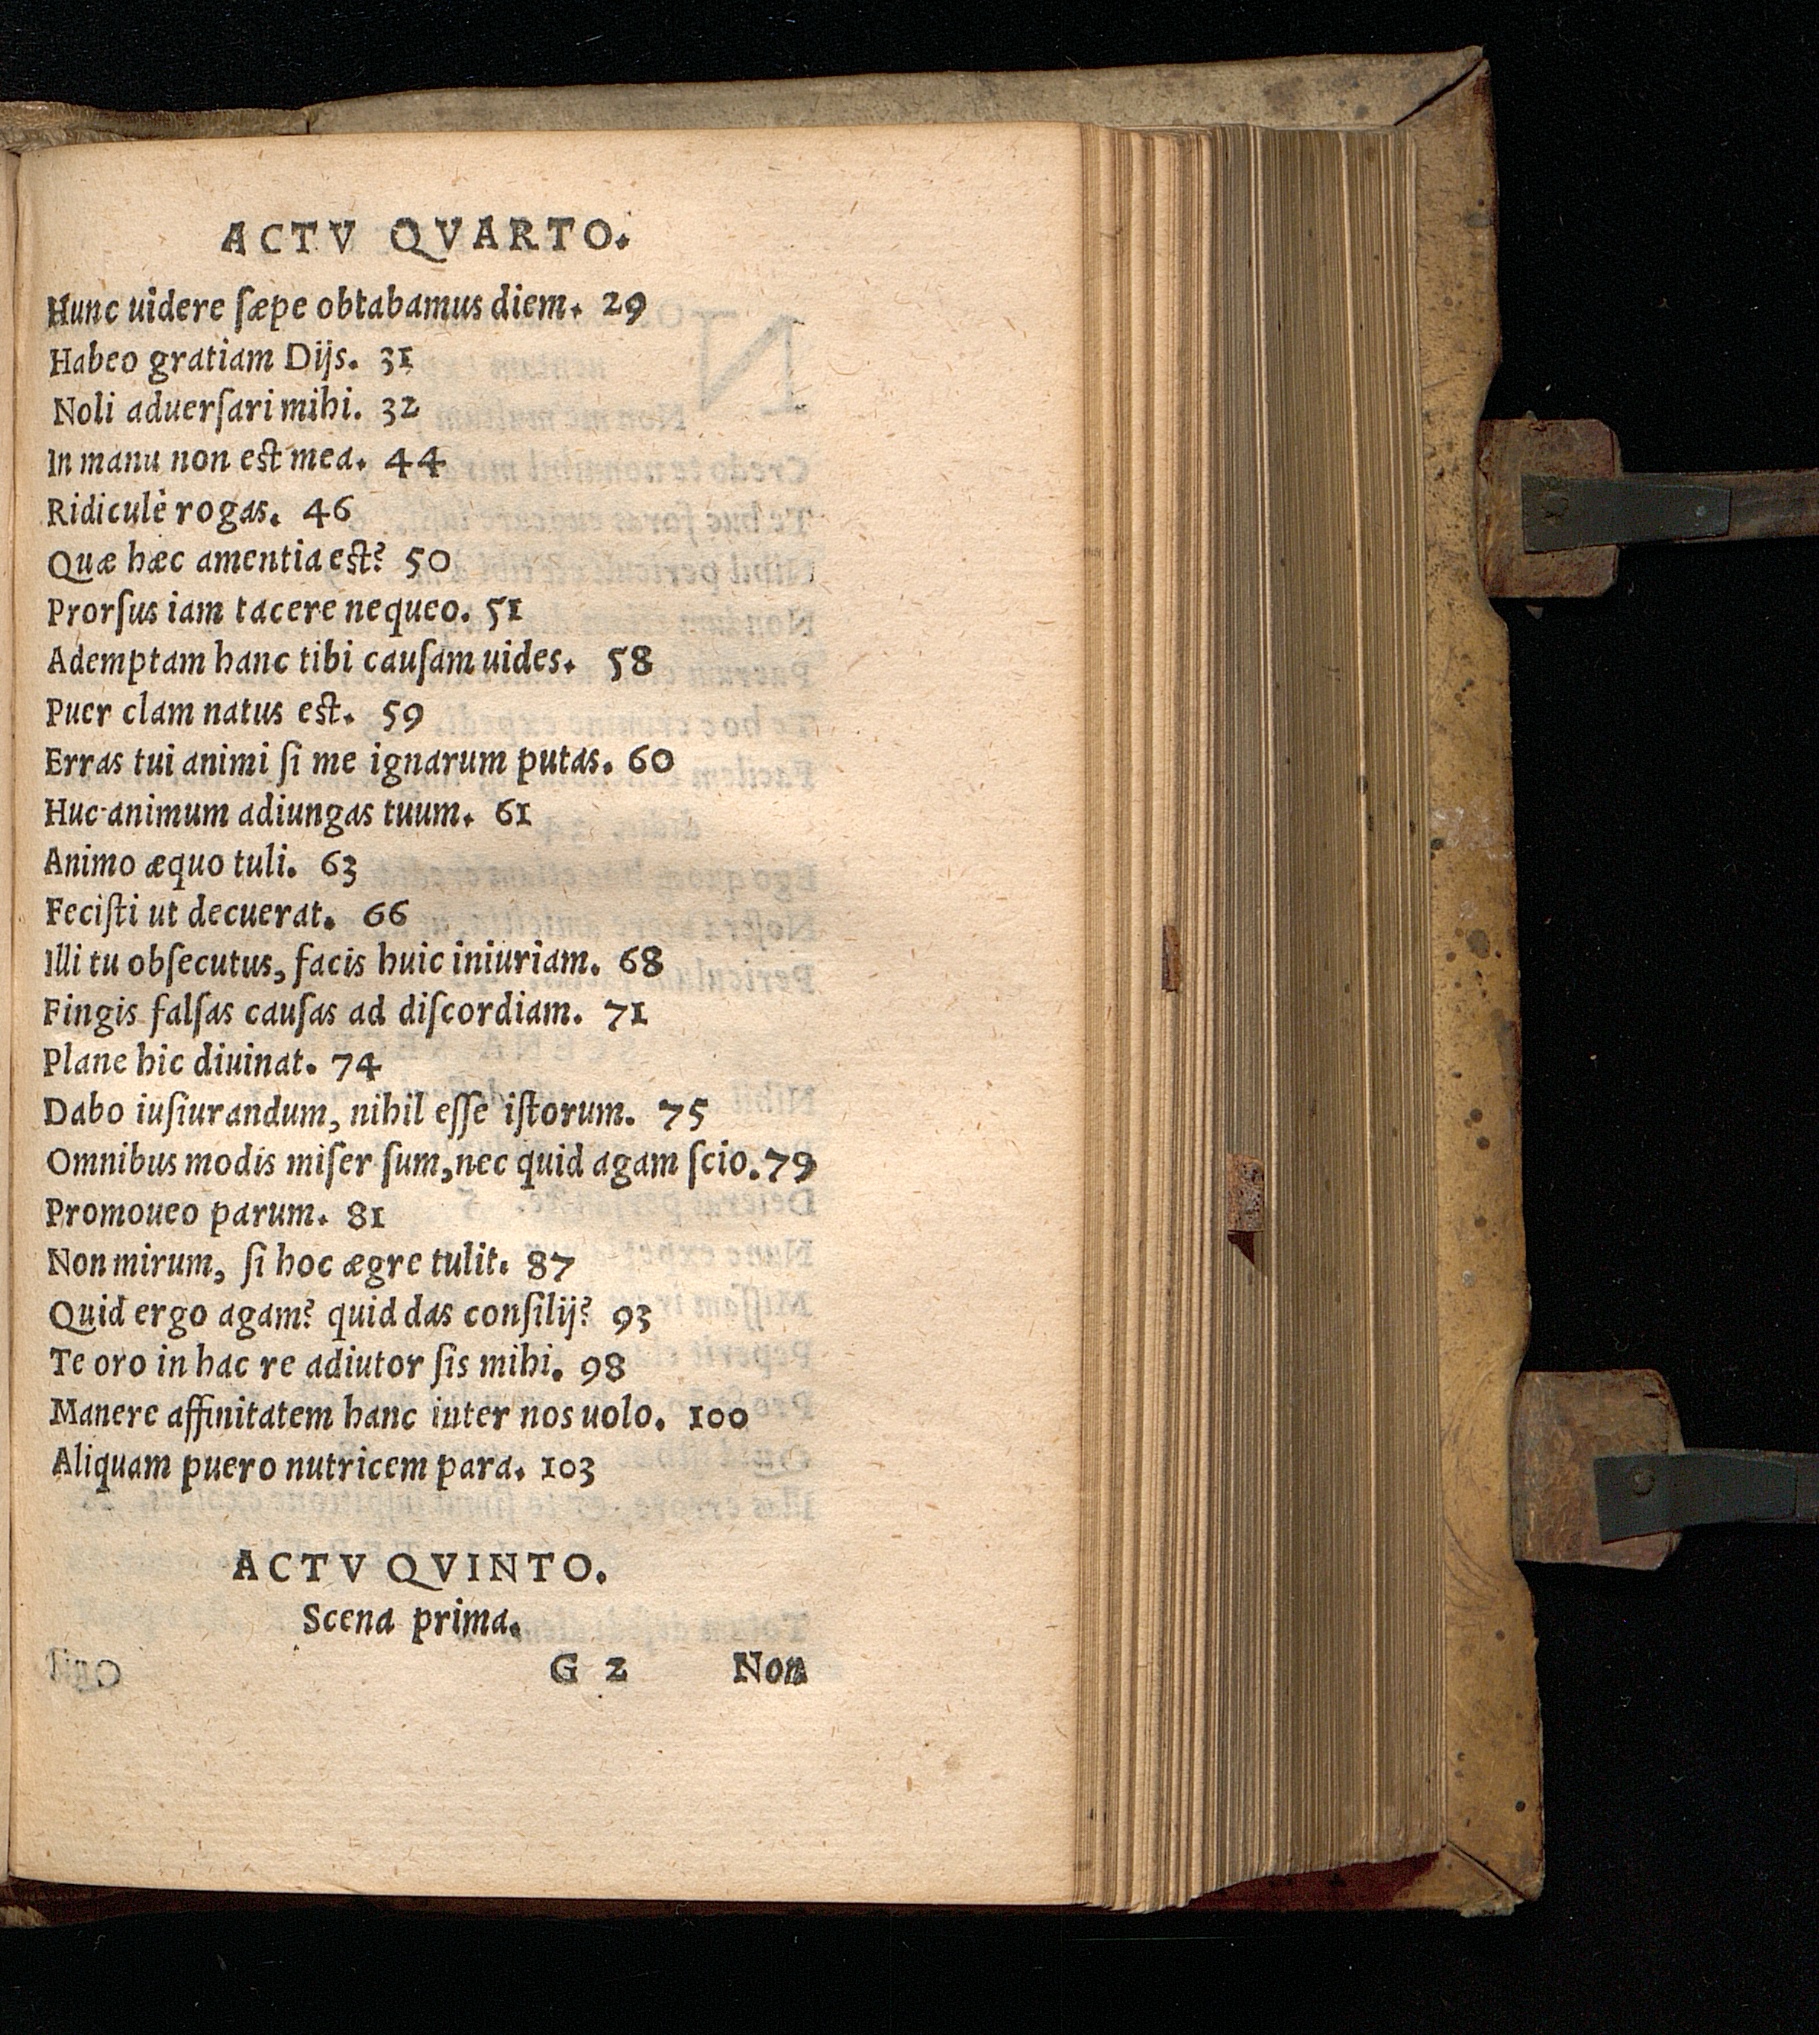 ACTV QVARTO.
Hunc uidere ſæpe obtabamus diem. 29
Habeo gratiam Dijs. 31
Noli aduerſari mihi. 32
In manu non est mea. 44
Ridiculè rogas. 46
Quæ hæc amentia est? 50
Prorſus iam tacere nequeo. 51
Ademptam hanc tibi cauſam uides. 58
Puer clam natus est. 59
Erras tui animi ſi me ignarum putas. 60
Huc animum adiungas tuum. 61
Animo æquo tuli. 63
Feciſti ut decuerat. 66
Illi tu obſecutus, facis huic iniuriam. 68
Fingis falſas cauſas ad diſcordiam. 71
Plane hic diuinat. 74
Dabo iuſiurandum, nihil eſſe iſtorum. 75
Omnibus modis miſer ſum, nec quid agam ſcio. 79
Promoueo parum. 81
Non mirum, ſi hoc ægre tulit. 87
Quid ergo agam? quid das conſilij? 93
Te oro in hac re adiutor ſis mihi. 98
Manere affinitatem hanc inter nos uolo. 100
Aliquam puero nutricem para. 103
ACTV QVINTO.
Scena prima.
G 2 Non